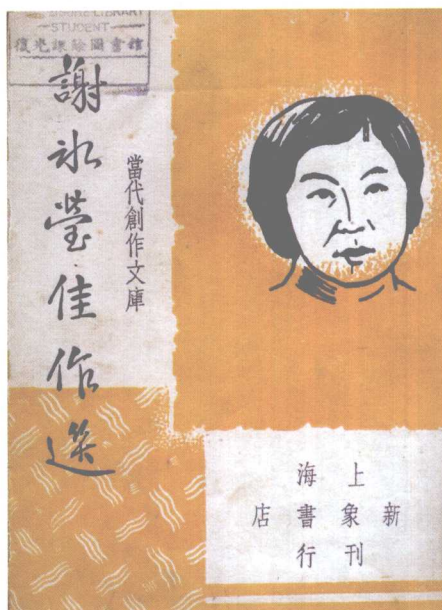 LIBRARY
STUDENT
圖書館
謝冰瑩佳作選
當代創作文庫
上海
新象書店
刊行